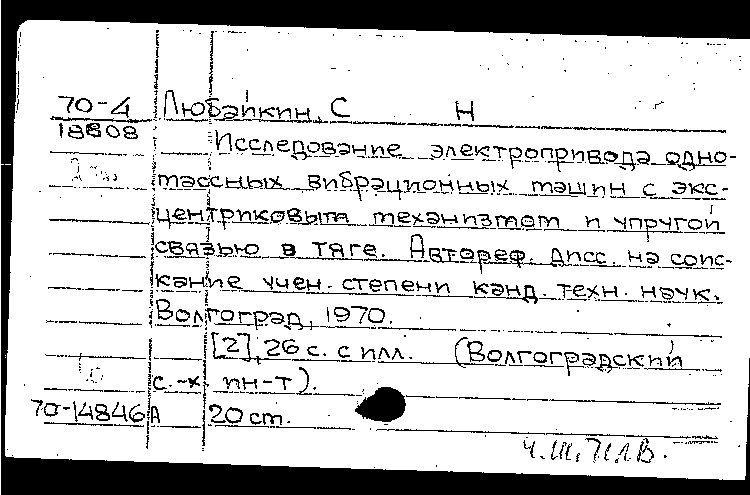 70-4 Любайкин, С Н
18808
Исследование электропривода одно-
массных вибрационных машин с экс-
центриковым механизмом и упругой
связью в тяге. Автореф. дисс. на соис-
кание учен. степени канд. техн. наук.
Волгоград, 1970.
[2], 26 с. с илл. (Волгоградский
с.-х. ин-т).
70-14846А 20 cm.